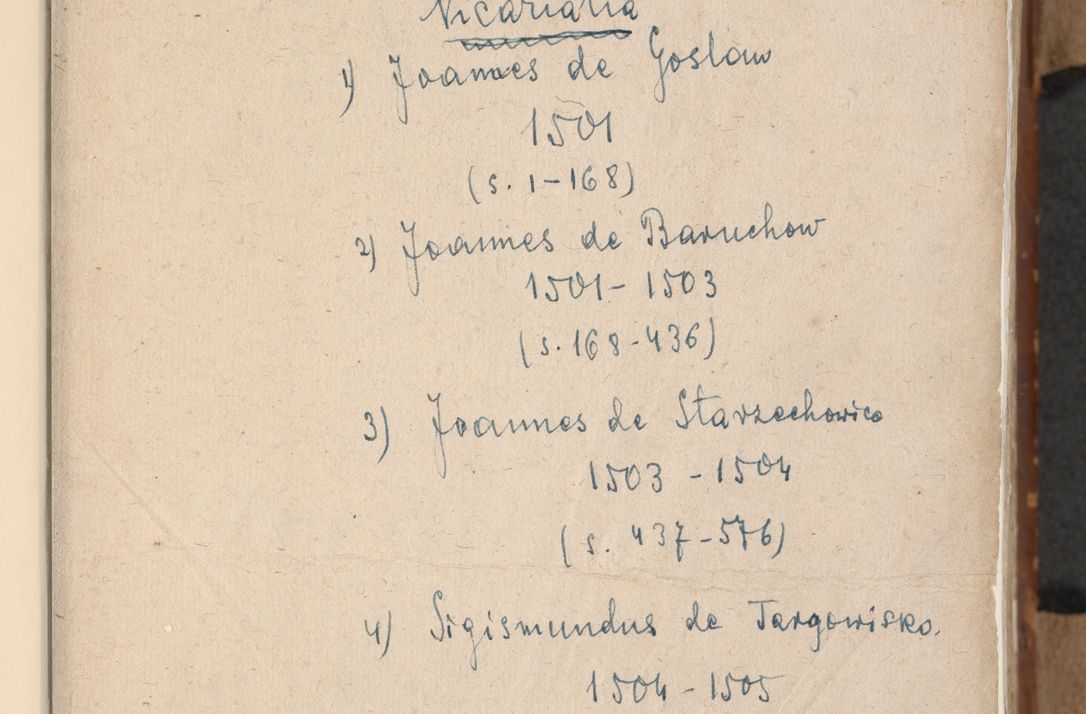 Vicariatia
1) Joannes de Goslaw
1501
(s. 1-168)
2) Joannes de Baruchow
1501-1503
(s. 168-436)
3) Joannes de Starzechowice
1503-1504
(s. 437-576)
4) Sigismundus de Targowisko.
1504-1505